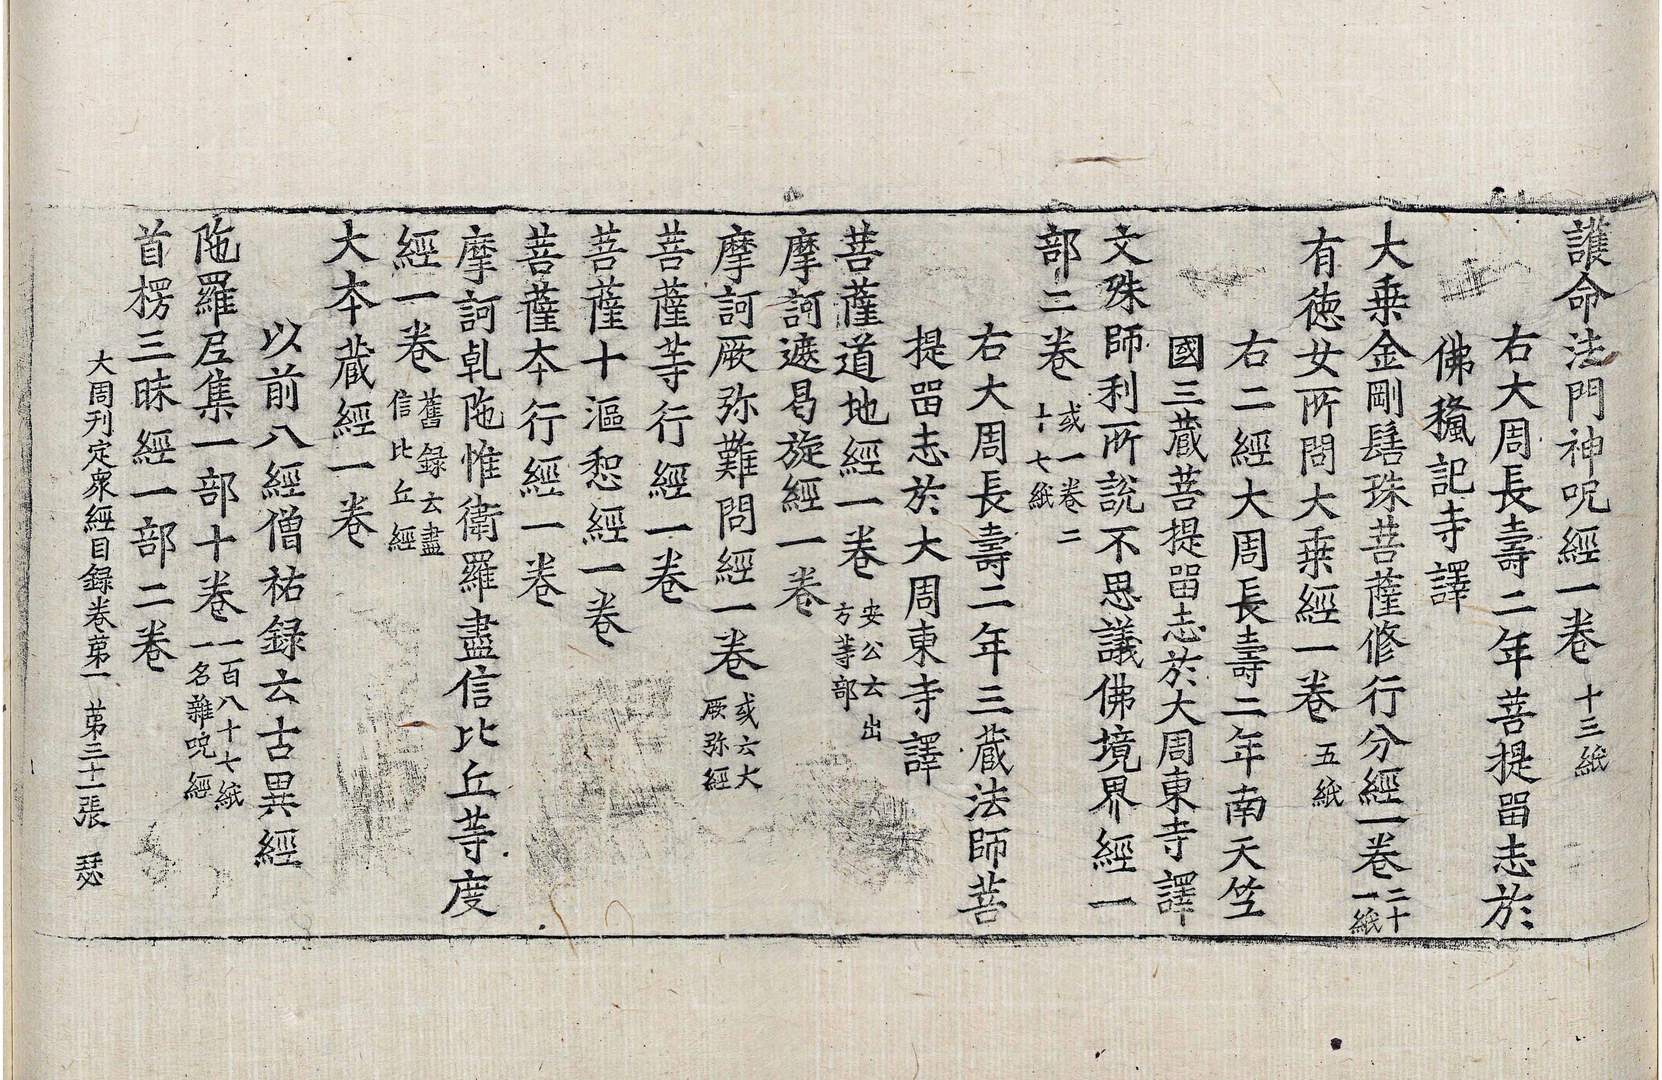 護命法門神呪經一卷 十三紙
右大周長壽二年菩提留志於
佛穐記寺譯
大乗金剛髻珠菩薩修行分經一卷 二十一紙
有徳女所問大乗經一卷 五紙
右二經大周長壽二年南天竺
國三藏菩提留志於大周東寺譯
文殊師利所說不思議佛境界經一
部二卷 或一卷二十七紙
右大周長壽二年三藏法師菩
提留志於大周東寺譯
菩薩道地經一卷 安公云出方等部
摩訶遮曷旋經一卷
摩訶厥弥難問經一卷 或云大厥弥經
菩薩等行經一卷
菩薩十漚惒經一卷
菩薩本行經一卷
摩訶乹陁惟衛羅盡信比丘等度
經一卷 舊録云盡信比丘經
大本藏經一卷
以前八經僧祐録云古異經
陁羅尼集一部十卷 一百八十七紙一名雜呪經
首楞三昧經一部二卷
大周刊定衆經目録卷苐一 苐三十一張 瑟